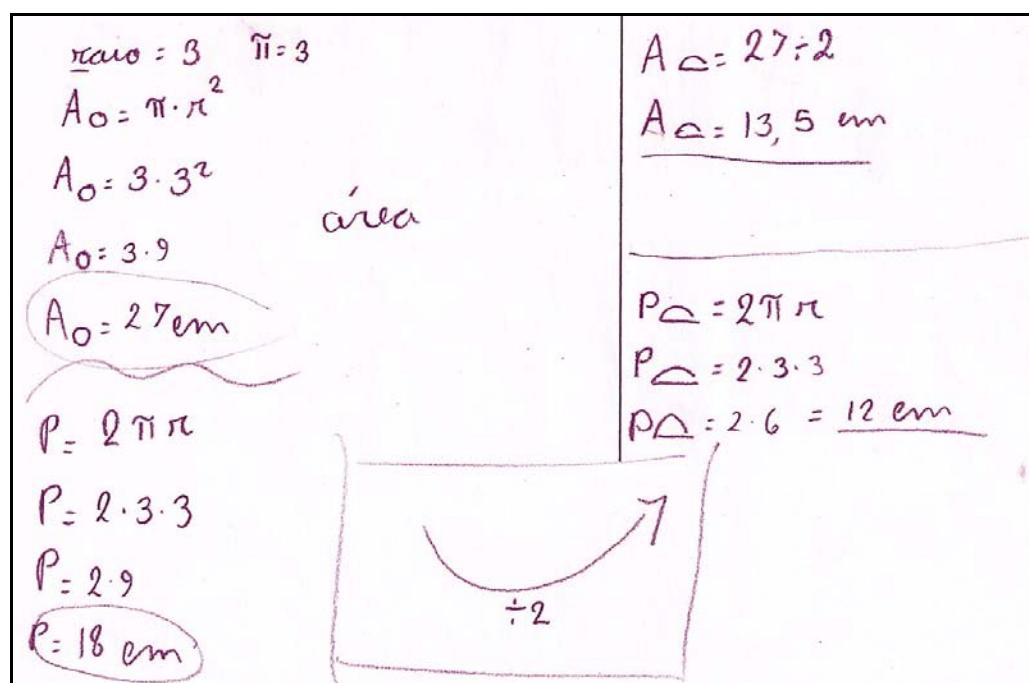 raio = 3 π = 3
A○ = π·r²
A○ = 3·3²
A○ = 3·9
A○ = 27 cm
área
P = 2πr
P = 2·3·3
P = 2·9
P = 18 cm
÷2
A⌓ = 27÷2
A⌓ = 13,5 cm
P⌓ = 2πr
P⌓ = 2·3·3
P⌓ = 2·6 = 12 cm